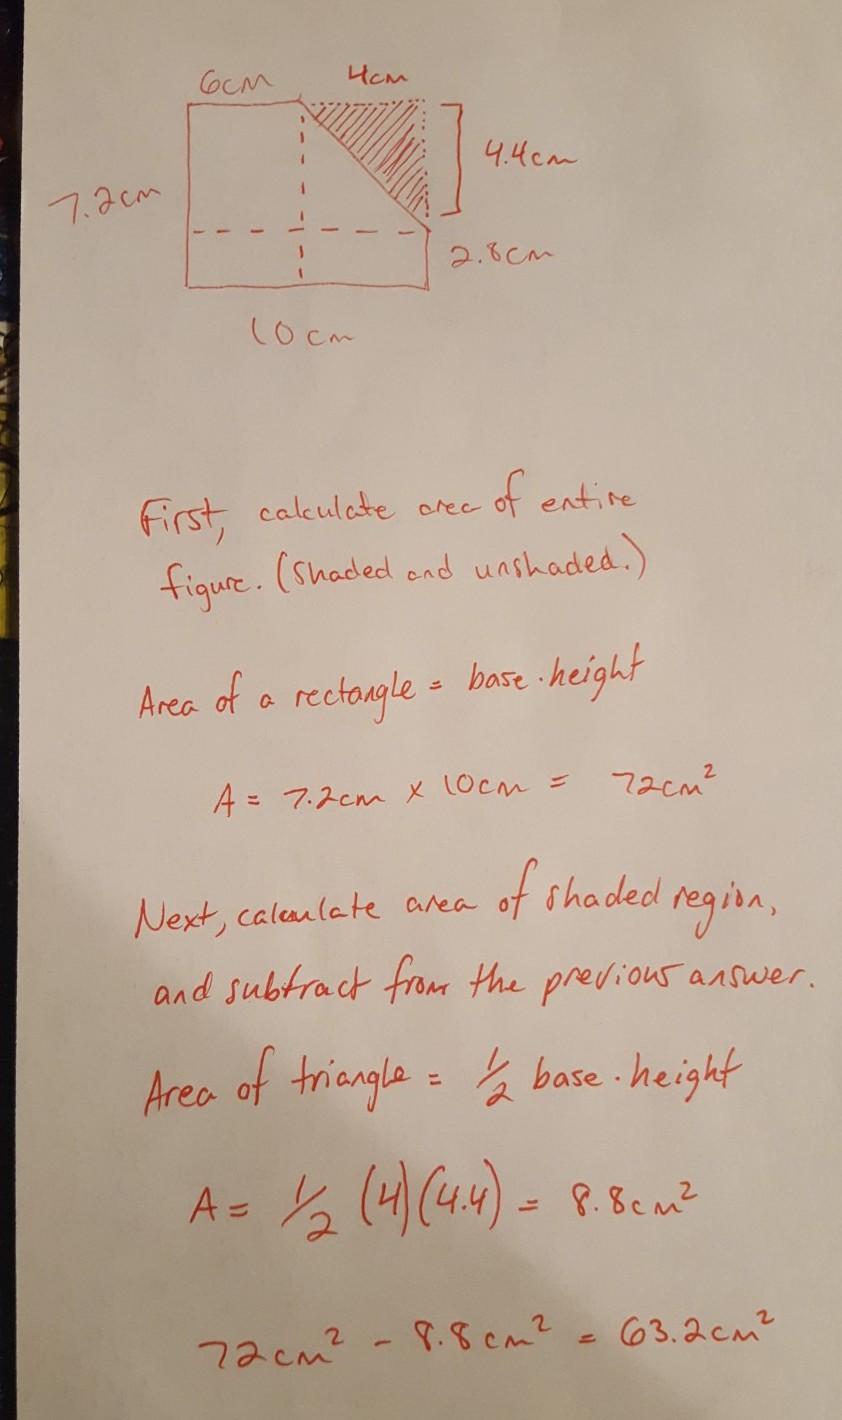 6cm 4cm
4.4cm
7.2cm
2.8cm
10cm
First, calculate area of entire
figure. (shaded and unshaded.)
Area of a rectangle = base · height
A = 7.2cm x 10cm = 72cm²
Next, calculate area of shaded region,
and subtract from the previous answer.
Area of triangle = 1/2 base · height
A = 1/2 (4)(4.4) = 8.8cm²
72cm² - 8.8cm² = 63.2cm²